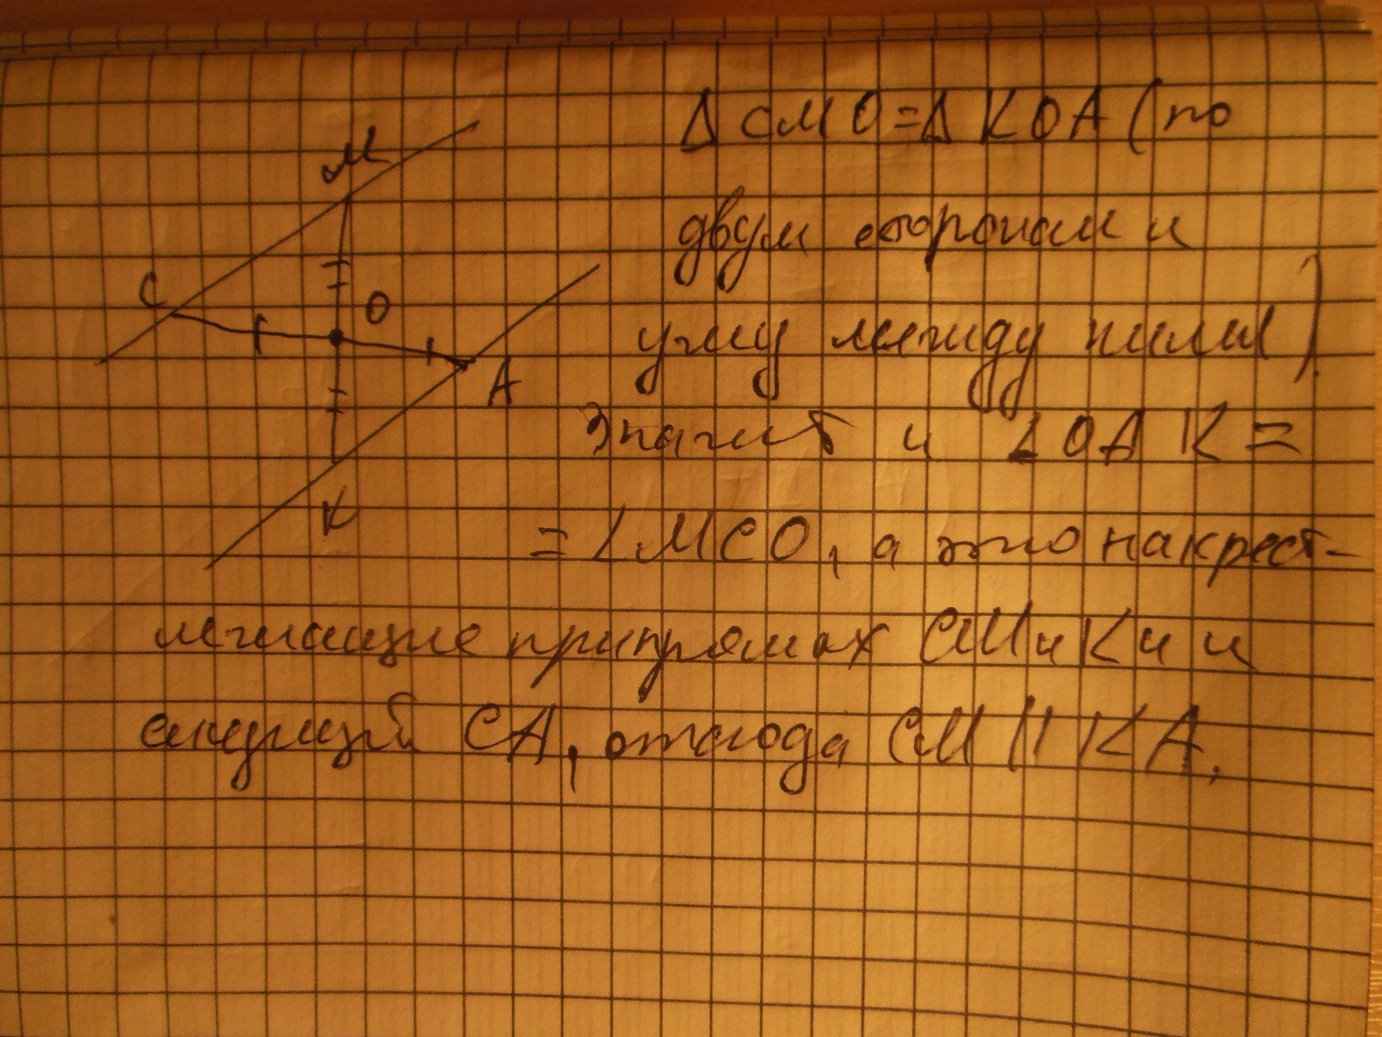 M
C
O
A
K
Δ CMO = Δ KOA (по
двум сторонам и
углу между ними).
Значит и ∠OAK =
= ∠MCO, а это накрест-
лежащие при прямых CM и KA и
секущей CA, отсюда CM || KA.